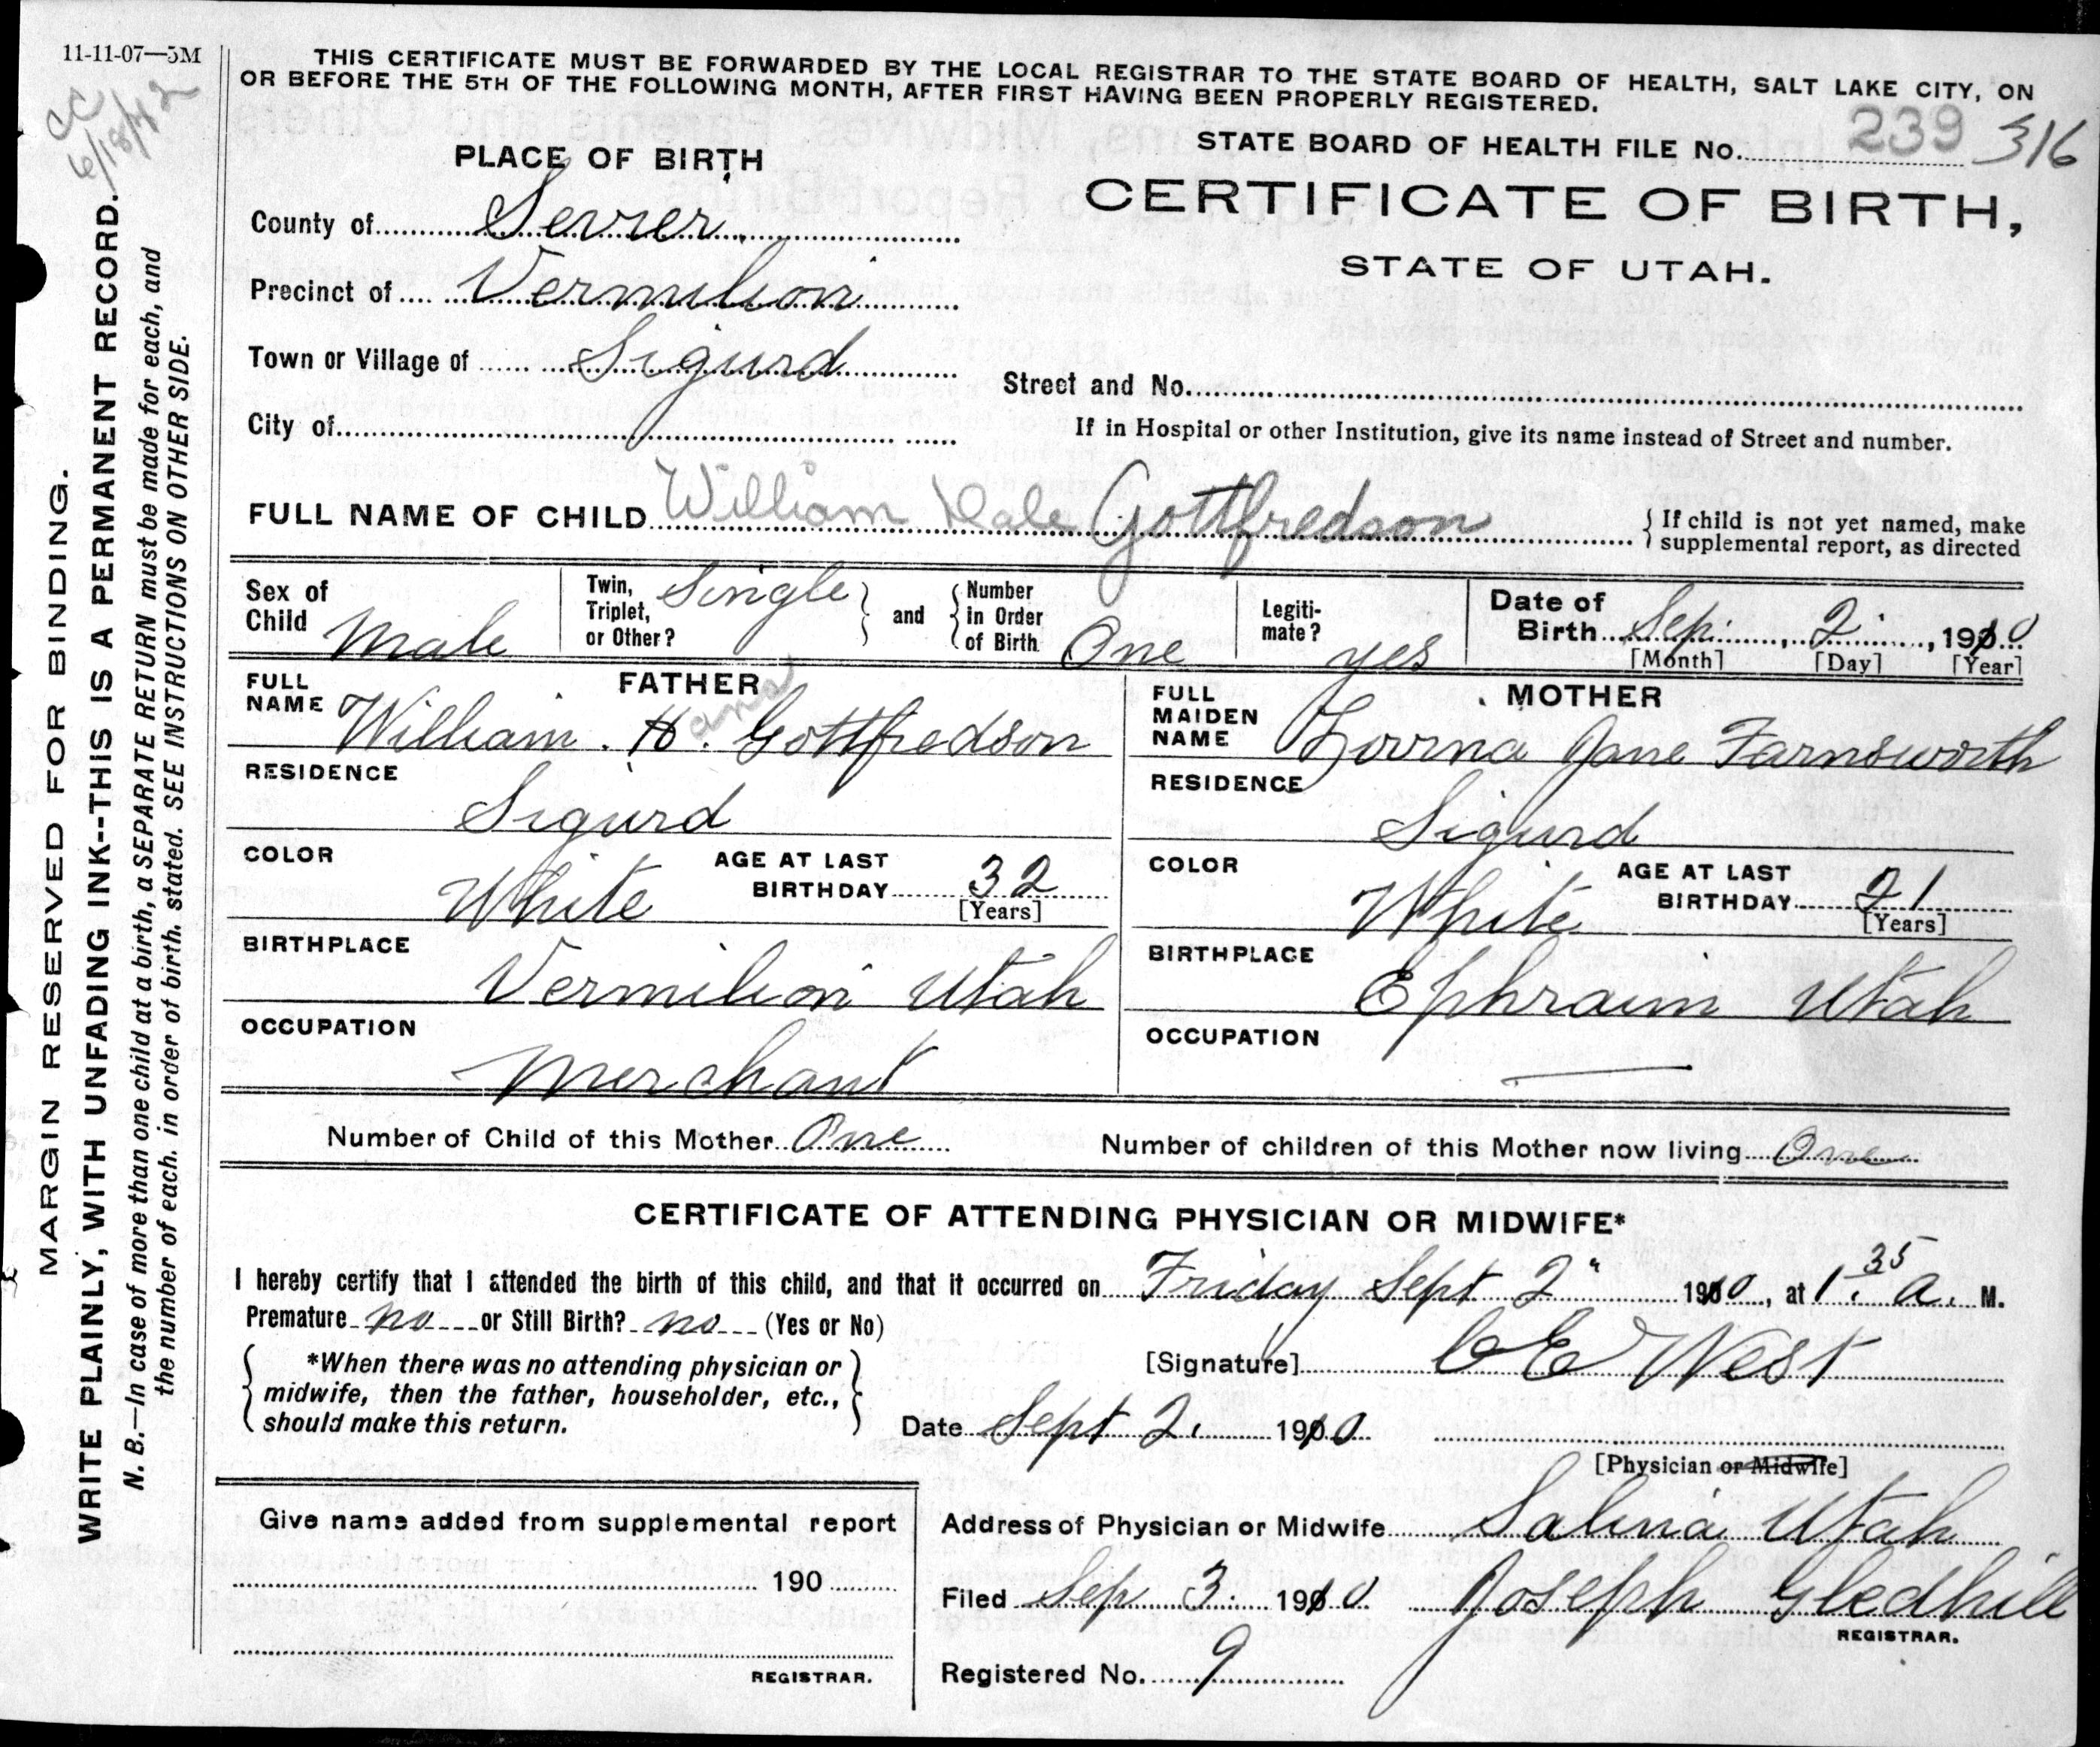 11-11-07—5M
CC
6/18/42
THIS CERTIFICATE MUST BE FORWARDED BY THE LOCAL REGISTRAR TO THE STATE BOARD OF HEALTH, SALT LAKE CITY, ON
OR BEFORE THE 5TH OF THE FOLLOWING MONTH, AFTER FIRST HAVING BEEN PROPERLY REGISTERED.
STATE BOARD OF HEALTH FILE No. 239 316
CERTIFICATE OF BIRTH,
STATE OF UTAH.
PLACE OF BIRTH
County of Sevier
Precinct of Vermilion
Town or Village of Sigurd
City of
Street and No.
If in Hospital or other Institution, give its name instead of Street and number.
FULL NAME OF CHILD William Dale Gottfredson
If child is not yet named, make
supplemental report, as directed
Sex of Child Male
Twin, Triplet, or Other? Single
and Number in Order of Birth One
Legiti-mate? yes
Date of Birth Sep. 2, 1910
[Month] [Day] [Year]
FATHER
FULL NAME William H. Gottfredson
RESIDENCE
Sigurd
COLOR White AGE AT LAST BIRTHDAY 32
[Years]
BIRTHPLACE
Vermilion Utah
OCCUPATION
Merchant
MOTHER
FULL MAIDEN NAME Lovina Jane Farnsworth
RESIDENCE
Sigurd
COLOR White AGE AT LAST BIRTHDAY 21
[Years]
BIRTHPLACE
Ephraim Utah
OCCUPATION
Number of Child of this Mother One Number of children of this Mother now living One
CERTIFICATE OF ATTENDING PHYSICIAN OR MIDWIFE*
I hereby certify that I attended the birth of this child, and that it occurred on Friday Sept 2" 1910, at 1.35 a. M.
Premature no or Still Birth? no (Yes or No)
*When there was no attending physician or
midwife, then the father, householder, etc.,
should make this return.
[Signature] C E West
Date Sept 2. 1910
[Physician or Midwife]
Give name added from supplemental report
190
REGISTRAR.
Address of Physician or Midwife Salina Utah
Filed Sep 3. 1910 Joseph Gledhill
REGISTRAR.
Registered No. 9
MARGIN RESERVED FOR BINDING.
WRITE PLAINLY, WITH UNFADING INK--THIS IS A PERMANENT RECORD.
N. B.—In case of more than one child at a birth, a SEPARATE RETURN must be made for each, and
the number of each, in order of birth, stated. SEE INSTRUCTIONS ON OTHER SIDE.